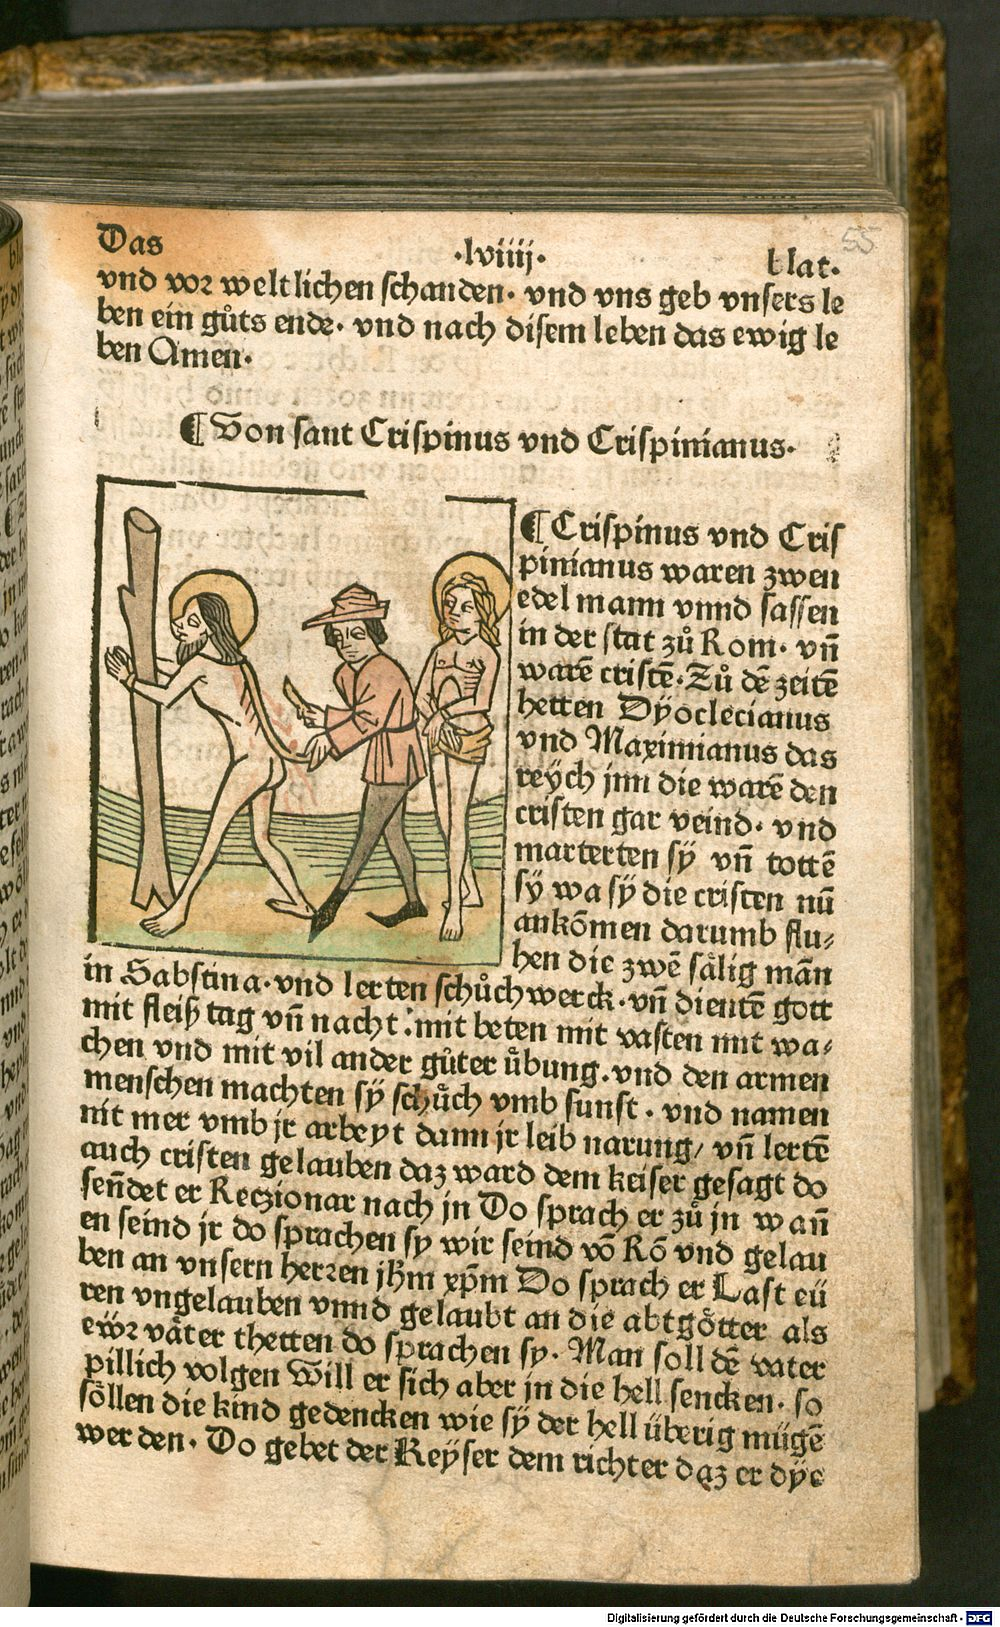 Das ·lviiij· blat·
55
vnd voꝛ weltlichen ſchanden· vnd vns geb vnſers le
ben ein gůts ende· vnd nach diſem leben das ewig le
ben Amen·
¶ Von ſant Criſpinus vnd Criſpinianus·
¶ Criſpinus vnd Criſ
pinianus waren zwen
edel mann vnnd ſaſſen
in der ſtat zů Rom· vn̄
warē criſtē· Zů dē zeitē
hetten Dyoclecianus
vnd Maximianus das
reÿch jnn die warē den
criſten gar veind· vnd
marterten ſÿ vn̄ tottē
ſÿ wa ſÿ die criſten nū
ankōmen darumb flu⸗
hen die zwē ſålig mān
in Sabſtina· vnd lerten ſchůchwerck· vn̄ dientē gott
mit fleiſz tag vn̄ nacht: mit beten mit vaſten mit wa⸗
chen vnd mit vil ander gůter ůbung. vnd den armen
menſchen machten ſÿ ſchůch vmb ſunſt· vnd namen
nit mer vmb jr arbeyt dann jr leib narung/ vn̄ lertē
auch criſten gelauben daz ward dem keiſer geſagt do
ſen̄det er Reczionar nach jn Do ſprach er zů jn wan̄
en ſeind jr do ſprachen ſy wir ſeind vō Rō vnd gelau
ben an vnſern herꝛen jhm xp̄m Do ſprach er Laſt eü
ren vngelauben vnnd gelaubt an die abtgǒtter als
ewꝛ våter thetten do ſprachen ſy· Man ſoll dē vater
pillich volgen Will er ſich aber in die hell ſencken· ſo
ſǒllen die kind gedencken wie ſÿ der hell überig mügē
werden· Do gebet der Keÿſer dem richter daz er dÿe
Digitalisierung gefördert durch die Deutsche Forschungsgemeinschaft - DFG